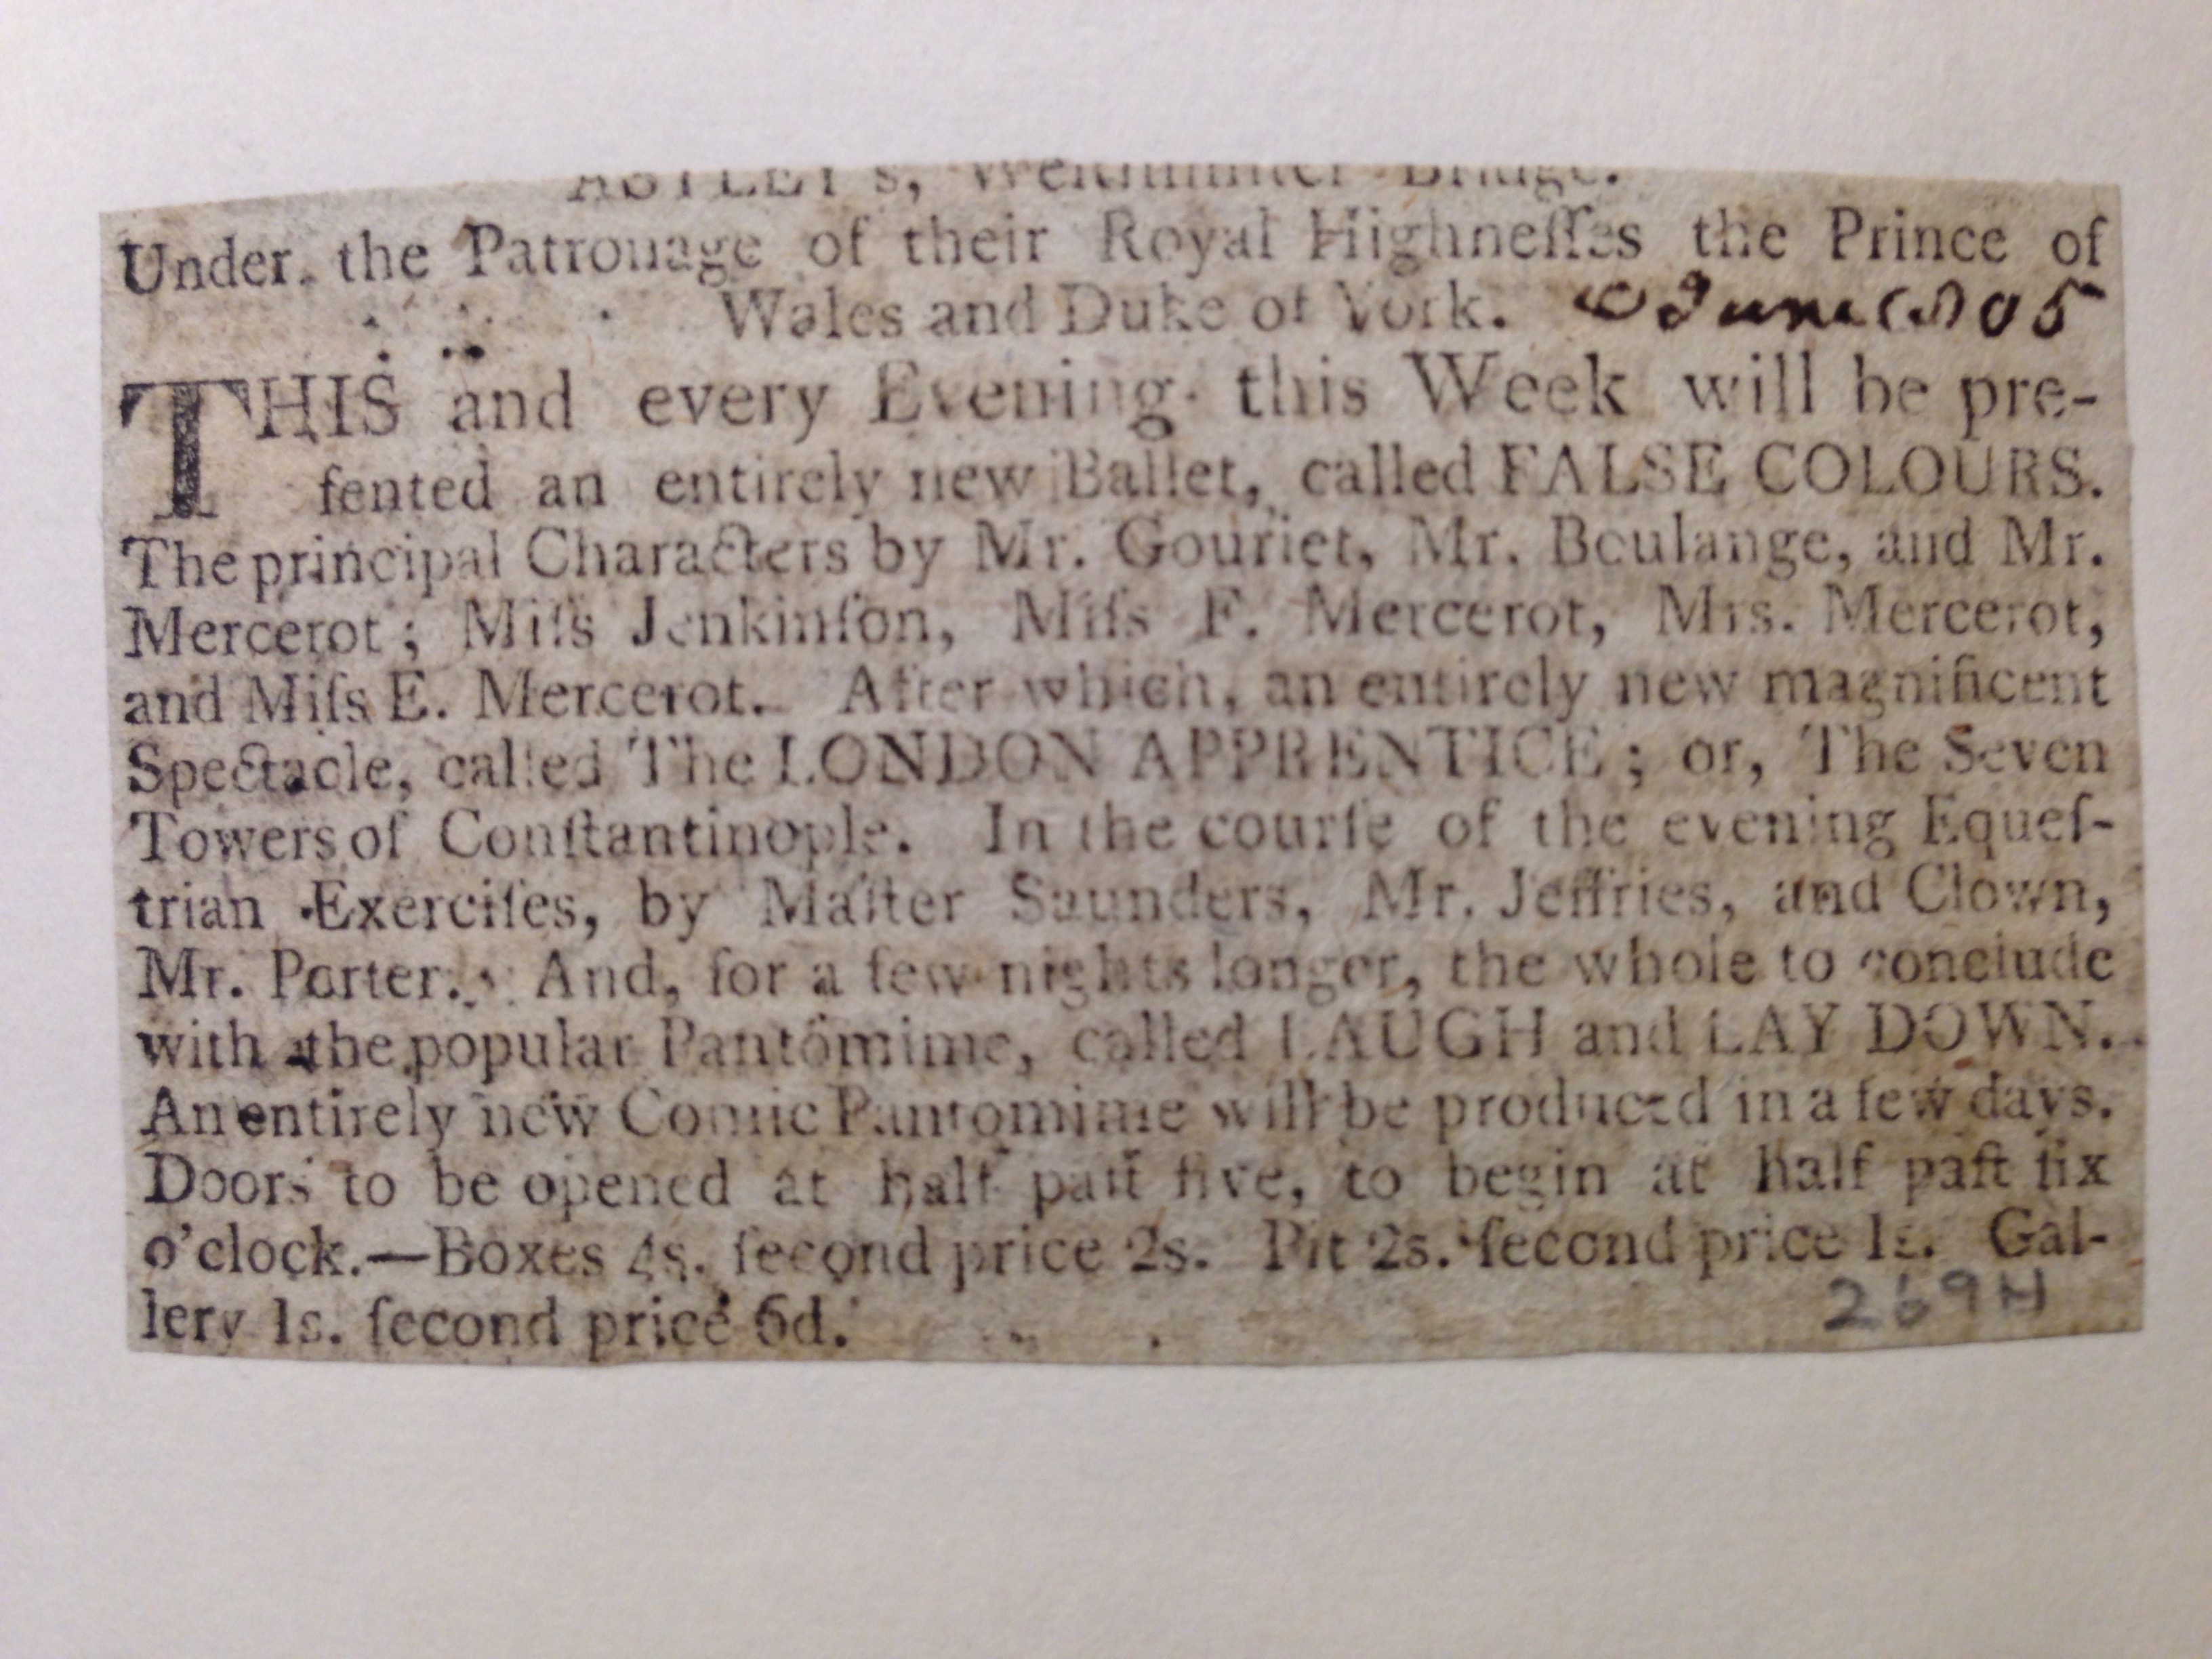 ASTLEY's, Weſtminſter Bridge.
Under the Patronage of their Royal Highneſſes the Prince of
Wales and Duke of York. June 1805
THIS and every Evening this Week will be pre-
ſented an entirely new Ballet, called FALSE COLOURS.
The principal Characters by Mr. Gouriet, Mr. Boulange, and Mr.
Mercerot; Miſs Jenkinſon, Miſs F. Mercerot, Mrs. Mercerot,
and Miſs E. Mercerot. After which, an entirely new magnificent
Spectacle, called The LONDON APPRENTICE; or, The Seven
Towers of Conſtantinople. In the courſe of the evening Equeſ-
trian Exerciſes, by Maſter Saunders, Mr. Jeffries, and Clown,
Mr. Porter. And, for a few nights longer, the whole to conclude
with the popular Pantomime, called LAUGH and LAY DOWN.
An entirely new Comic Pantomime will be produced in a few days.
Doors to be opened at half paſt five, to begin at half paſt ſix
o'clock.—Boxes 4s. ſecond price 2s. Pit 2s. ſecond price 1s. Gal-
lery 1s. ſecond price 6d.
269H